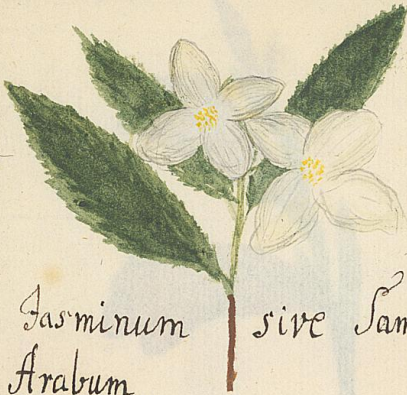 Jasminum sive Sam
Arabum